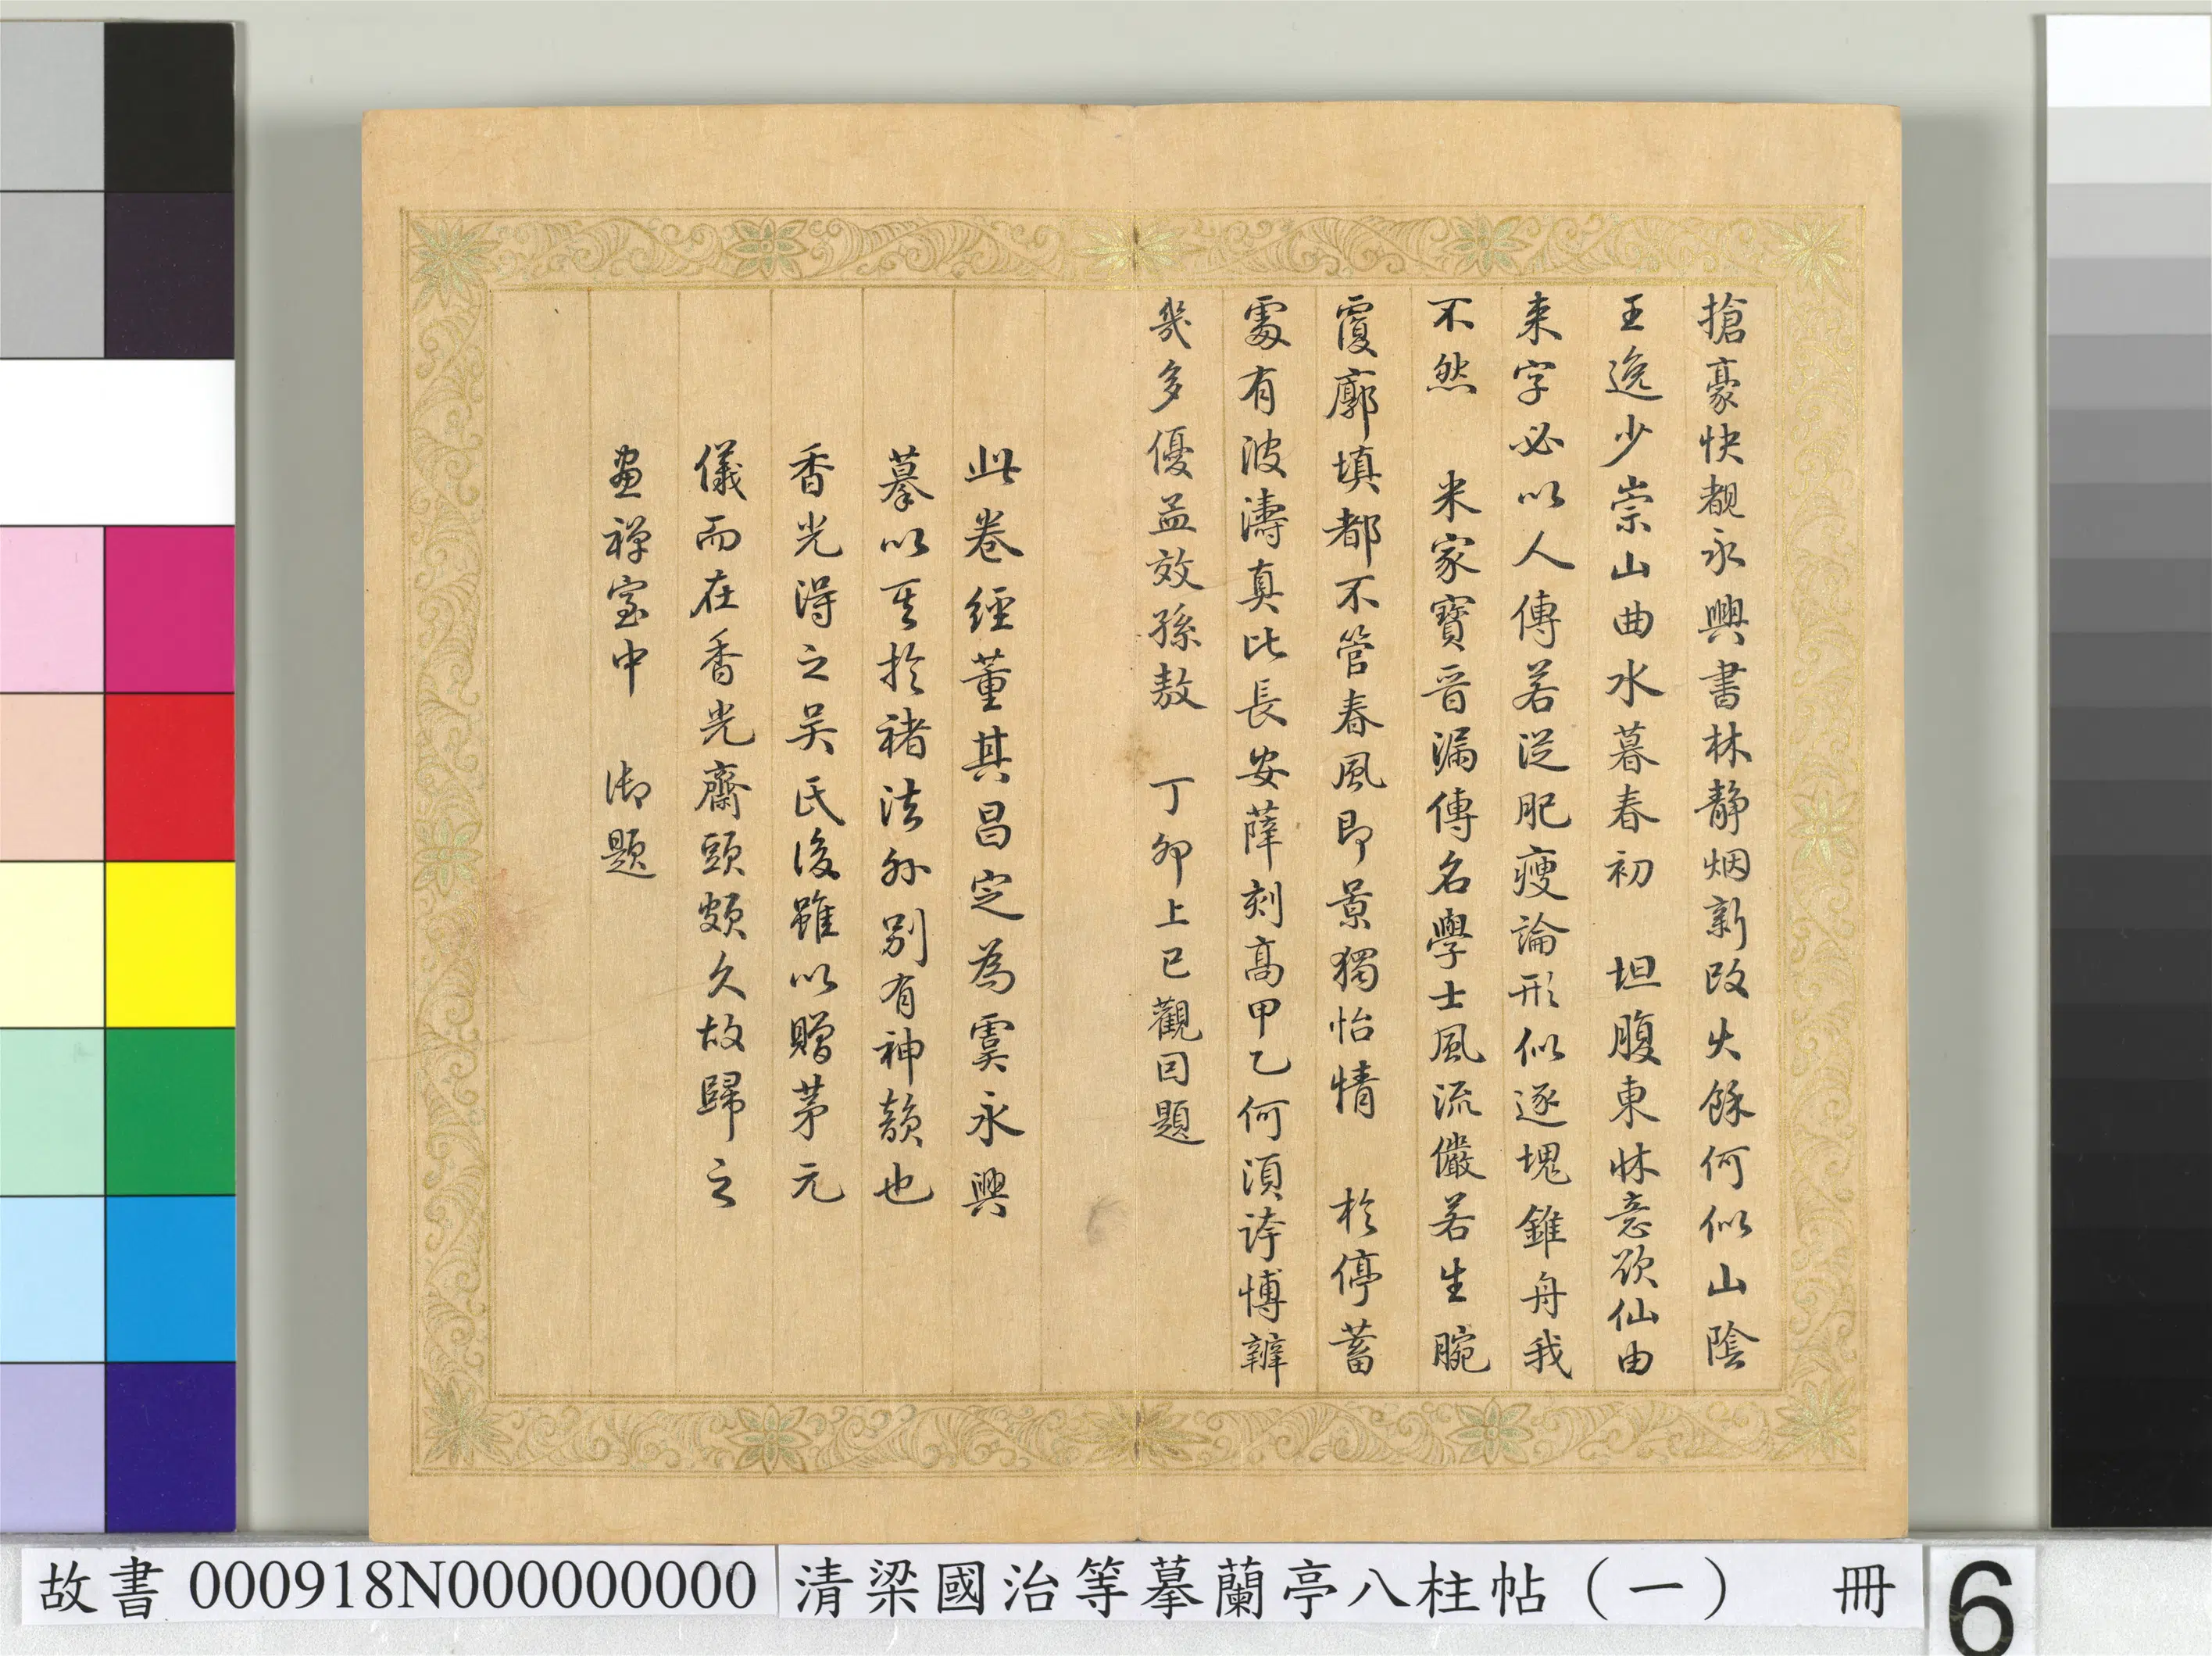 搶豪快覩永興書林靜烟新改火餘何似山陰
王逸少崇山曲水暮春初　坦腹東牀意欲仙由
来字必以人傳若從肥瘦論形似逐塊錐舟我
不然　米家寶晉漏傳名學士風流儼若生腕
覆廓填都不管春風即景獨怡情　於停蓄
處有波濤真比長安薛刻高甲乙何須誇博辯
幾多優孟效孫敖　丁卯上巳觀囙題
此卷經董其昌定為虞永興
摹以其於褚法外別有神韻也
香光得之吴氏後雖以贈茅元
儀而在香光齋頭頗久故歸之
畫禪室中　御題
故書 000918N000000000
清梁國治等摹蘭亭八柱帖（一）　冊
6